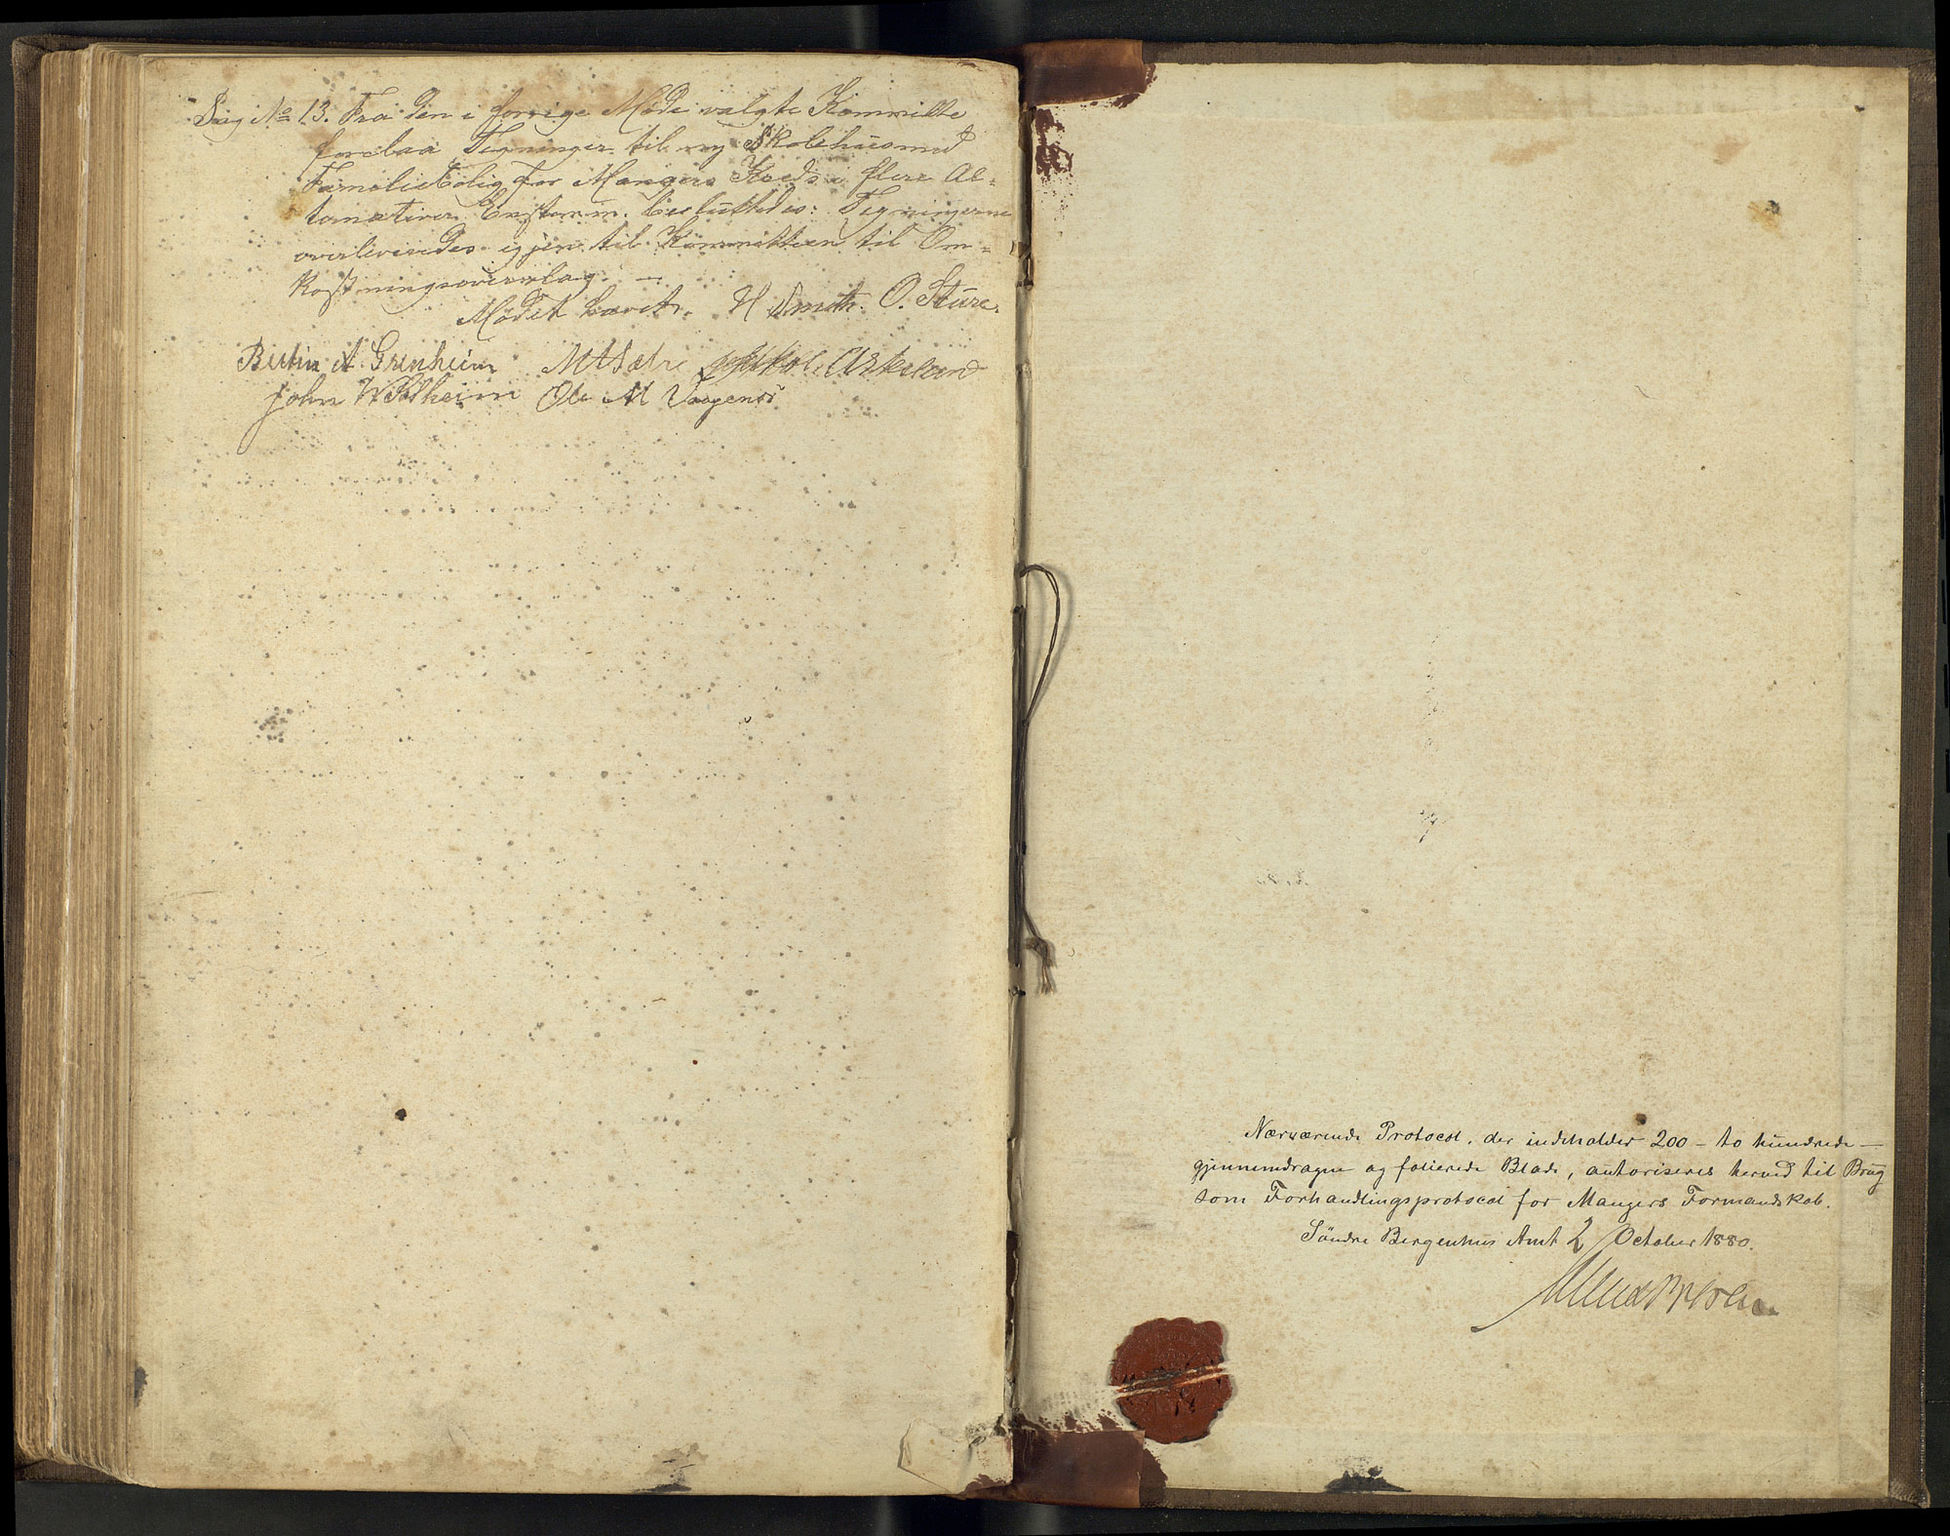 Sag No 13. Fra den i forrige Møde valgte Kommitte
forelaa Tegninger til ny Skolehus med
Familiebolig for Mangers Kreds i flere Al-
ternativer. Enstemm. besluttedes: Tegningerne
overleveredes igjen til Kommitteen til Om-
kostningsoverslag. —
Mødet hævet. H Smith. O. Sture.
A. Grenheim M A Sætre Askeland
John Ole M Vaagenes
Nærværende Protocol, der indeholder 200 – to hundrede –
gjennemdragne og folierede Blade, autoriseres herved til Brug
som Forhandlingsprotocol for Mangers Formandskab.
Söndre Bergenhus Amt 2 October 1880.